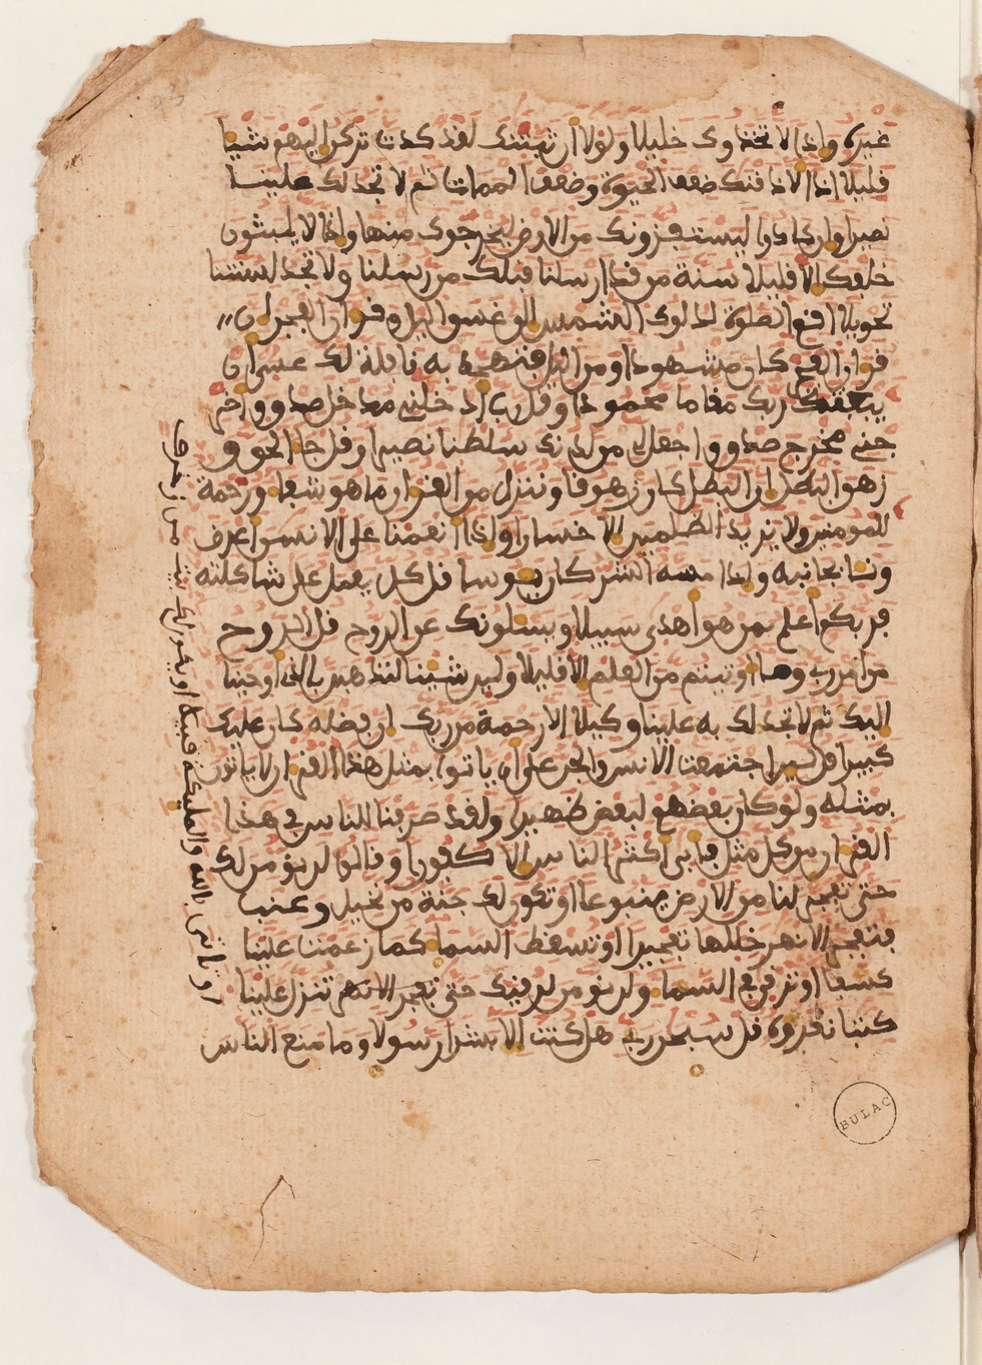 غيره وإذا لاتخذوك خليلا ولولا أن ثبتنك لقد كدت تركن إليهم شيئا
قليلا إذا لأذقنك ضعف الحيوة وضعف الممات ثم لا تجد لك علينا
نصيرا وإن كادوا ليستفزونك من الأرض ليخرجوك منها وإذا لا يلبثون
خلفك إلا قليلا سنة من قد أرسلنا قبلك من رسلنا ولا تجد لسنتنا
تحويلا أقم الصلوة لدلوك الشمس إلى غسق اليل وقرءان الفجر إن
قرءان الفجر كان مشهودا ومن اليل فتهجد به نافلة لك عسى أن
يبعثك ربك مقاما محمودا وقل رب أدخلني مدخل صدق وأخر
جني مخرج صدق واجعل لي من لدنك سلطنا نصيرا وقل جاء الحق و
زهق البطل إن البطل كان زهوقا وننزل من القرءان ما هو شفاء ورحمة
للمومنين ولا يزيد الظلمين إلا خسارا وإذا أنعمنا على الانسن أعرض
ونئا بجانبه وإذا مسه الشر كان يئوسا قل كل يعمل على شاكلته
فربكم أعلم بمن هو أهدى سبيلا ويسلونك عن الروح قل الروح
من أمر ربي وما أوتيتم من العلم إلا قليلا ولين شئنا لنذهبن بالذي أوحينا
إليك ثم لا تجد لك به علينا وكيلا إلا رحمة من ربك إن فضله كان عليك
كبيرا قل لين اجتمعت الانس والجن على أن ياتوا بمثل هذا القرءان لا ياتون
بمثله ولو كان بعضهم لبعض ظهيرا ولقد صرفنا للناس في هذا
القرءان من كل مثل فأبى أكثر الناس إلا كفورا وقالوا لن نومن لك
حتى تفجر لنا من الأرض ينبوعا أو تكون لك جنة من نخيل وعنب
فتفجر الانهر خللها تفجيرا أو تسقط السماء كما زعمت علينا
كسفا أو ترقى في السماء ولن نومن لرقيك حتى تفجر الانهر تنزل علينا
كتبا نقرؤه قل سبحن ربي هل كنت إلا بشرا رسولا وما منع الناس
أو تاتي بالله والمليكة قبيلا أو يكون لك بيت من زخرف
BULAC